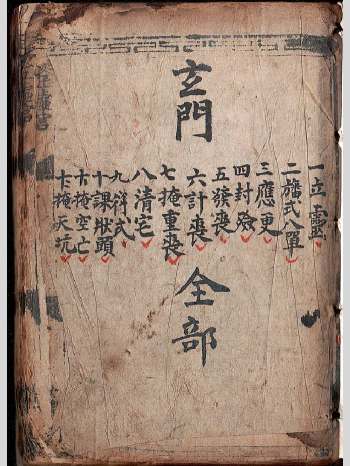 玄門
一立靈
二旛式八單
三應更
四封殮
五發喪
六計喪
七掩重喪
八清宅
九祥式
十課狀頭
十掩空亡
十掩天坑
全部